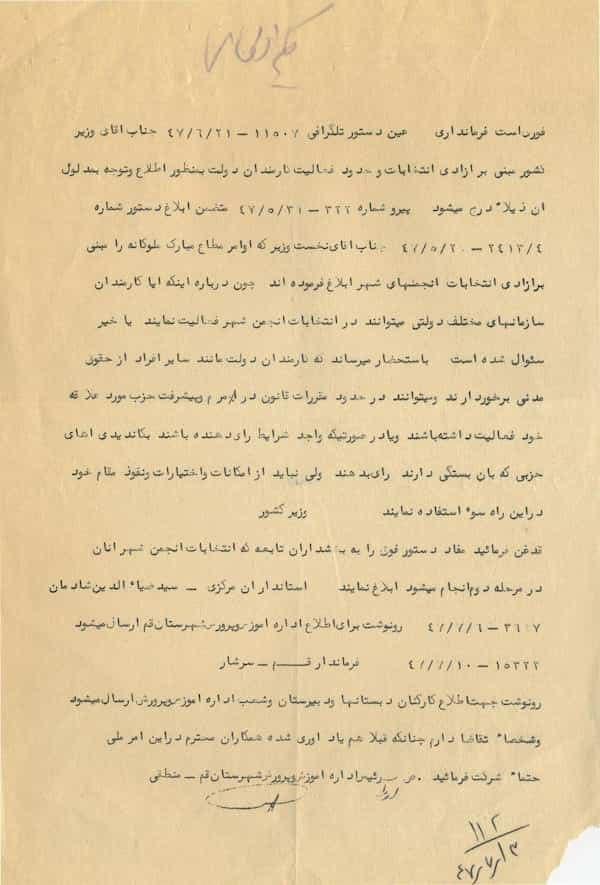 فوریست فرمانداری عین دستور تلگرافی ۱۱۵۰۷ – ۴۷/۶/۲۱ جناب اقای وزیر
کشور مبنی بر ازادی انتخابات و حدود فعالیت کارمندان دولت بمنظور اطلاع وتوجه بمدلول
ان ذیلاً درج میشود پیرو شماره ۳۲۲ – ۴۷/۵/۳۱ متضمن ابلاغ دستور شماره
۲۴۱۳/۴ – ۴۷/۵/۲۰ جناب اقای نخست وزیر که اوامر مطاع مبارک ملوکانه را مبنی
برازادی انتخابات انجمنهای شهر ابلاغ فرموده اند چون درباره اینکه ایا کارمندان
سازمانهای مختلف دولتی میتوانند در انتخابات انجمن شهر فعالیت نمایند یا خیر
سئوال شده است باستحضار میرساند که کارمندان دولت مانند سایر افراد از حقوق
مدنی برخوردارند ومیتوانند در حدود مقررات قانون در امر مرام وپیشرفت حزب مورد علاقه
خود فعالیت داشته باشند ویادر صورتیکه واجد شرایط رای دهنده باشند بکاندیدی اهای
حزبی که بان بستگی دارند رای بدهند ولی نباید از امکانات واختیارات ونفوذ مقام خود
دراین راه سوء استفاده نمایند وزیر کشور
قدغن فرمائید مفاد دستور فوق را به بخشداران تابعه که انتخابات انجمن شهر انان
در مرحله دوم انجام میشود ابلاغ نمایند استاندار ان مرکزی – سید ضیاء الدین شادمان
رونوشت برای اطلاع اداره اموزش وپرورش شهرستان قم ارسال میشود
۱۵۳۲۲ – ۴۷/۷/۱۰ فرماندار قم – سرشار
رونوشت جهت اطلاع کارکنان دبستانها ودبیرستان وشعب اداره اموزش وپرورش ارسال میشود
وشخصاً تقاضا دارم چنانکه قبلا هم یاد اوری شده همکاران محترم دراین امر ملی
حتماً شرکت فرمائید . رئیس اداره اموزش وپرورش شهرستان قم – منطقی
۱۱۲
۴۷/۷/۱۳